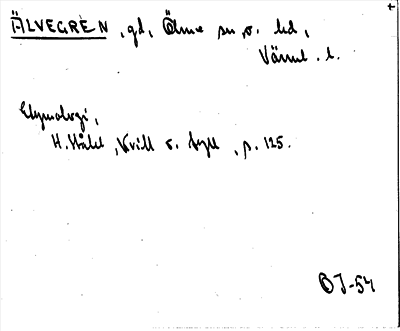 ÄLVEGREN, gd, Ölme sn, o. hd,
Värml. l.
Etymologi,
H. Ståhl, Kvill o. tyll, p. 125.
BJ-54